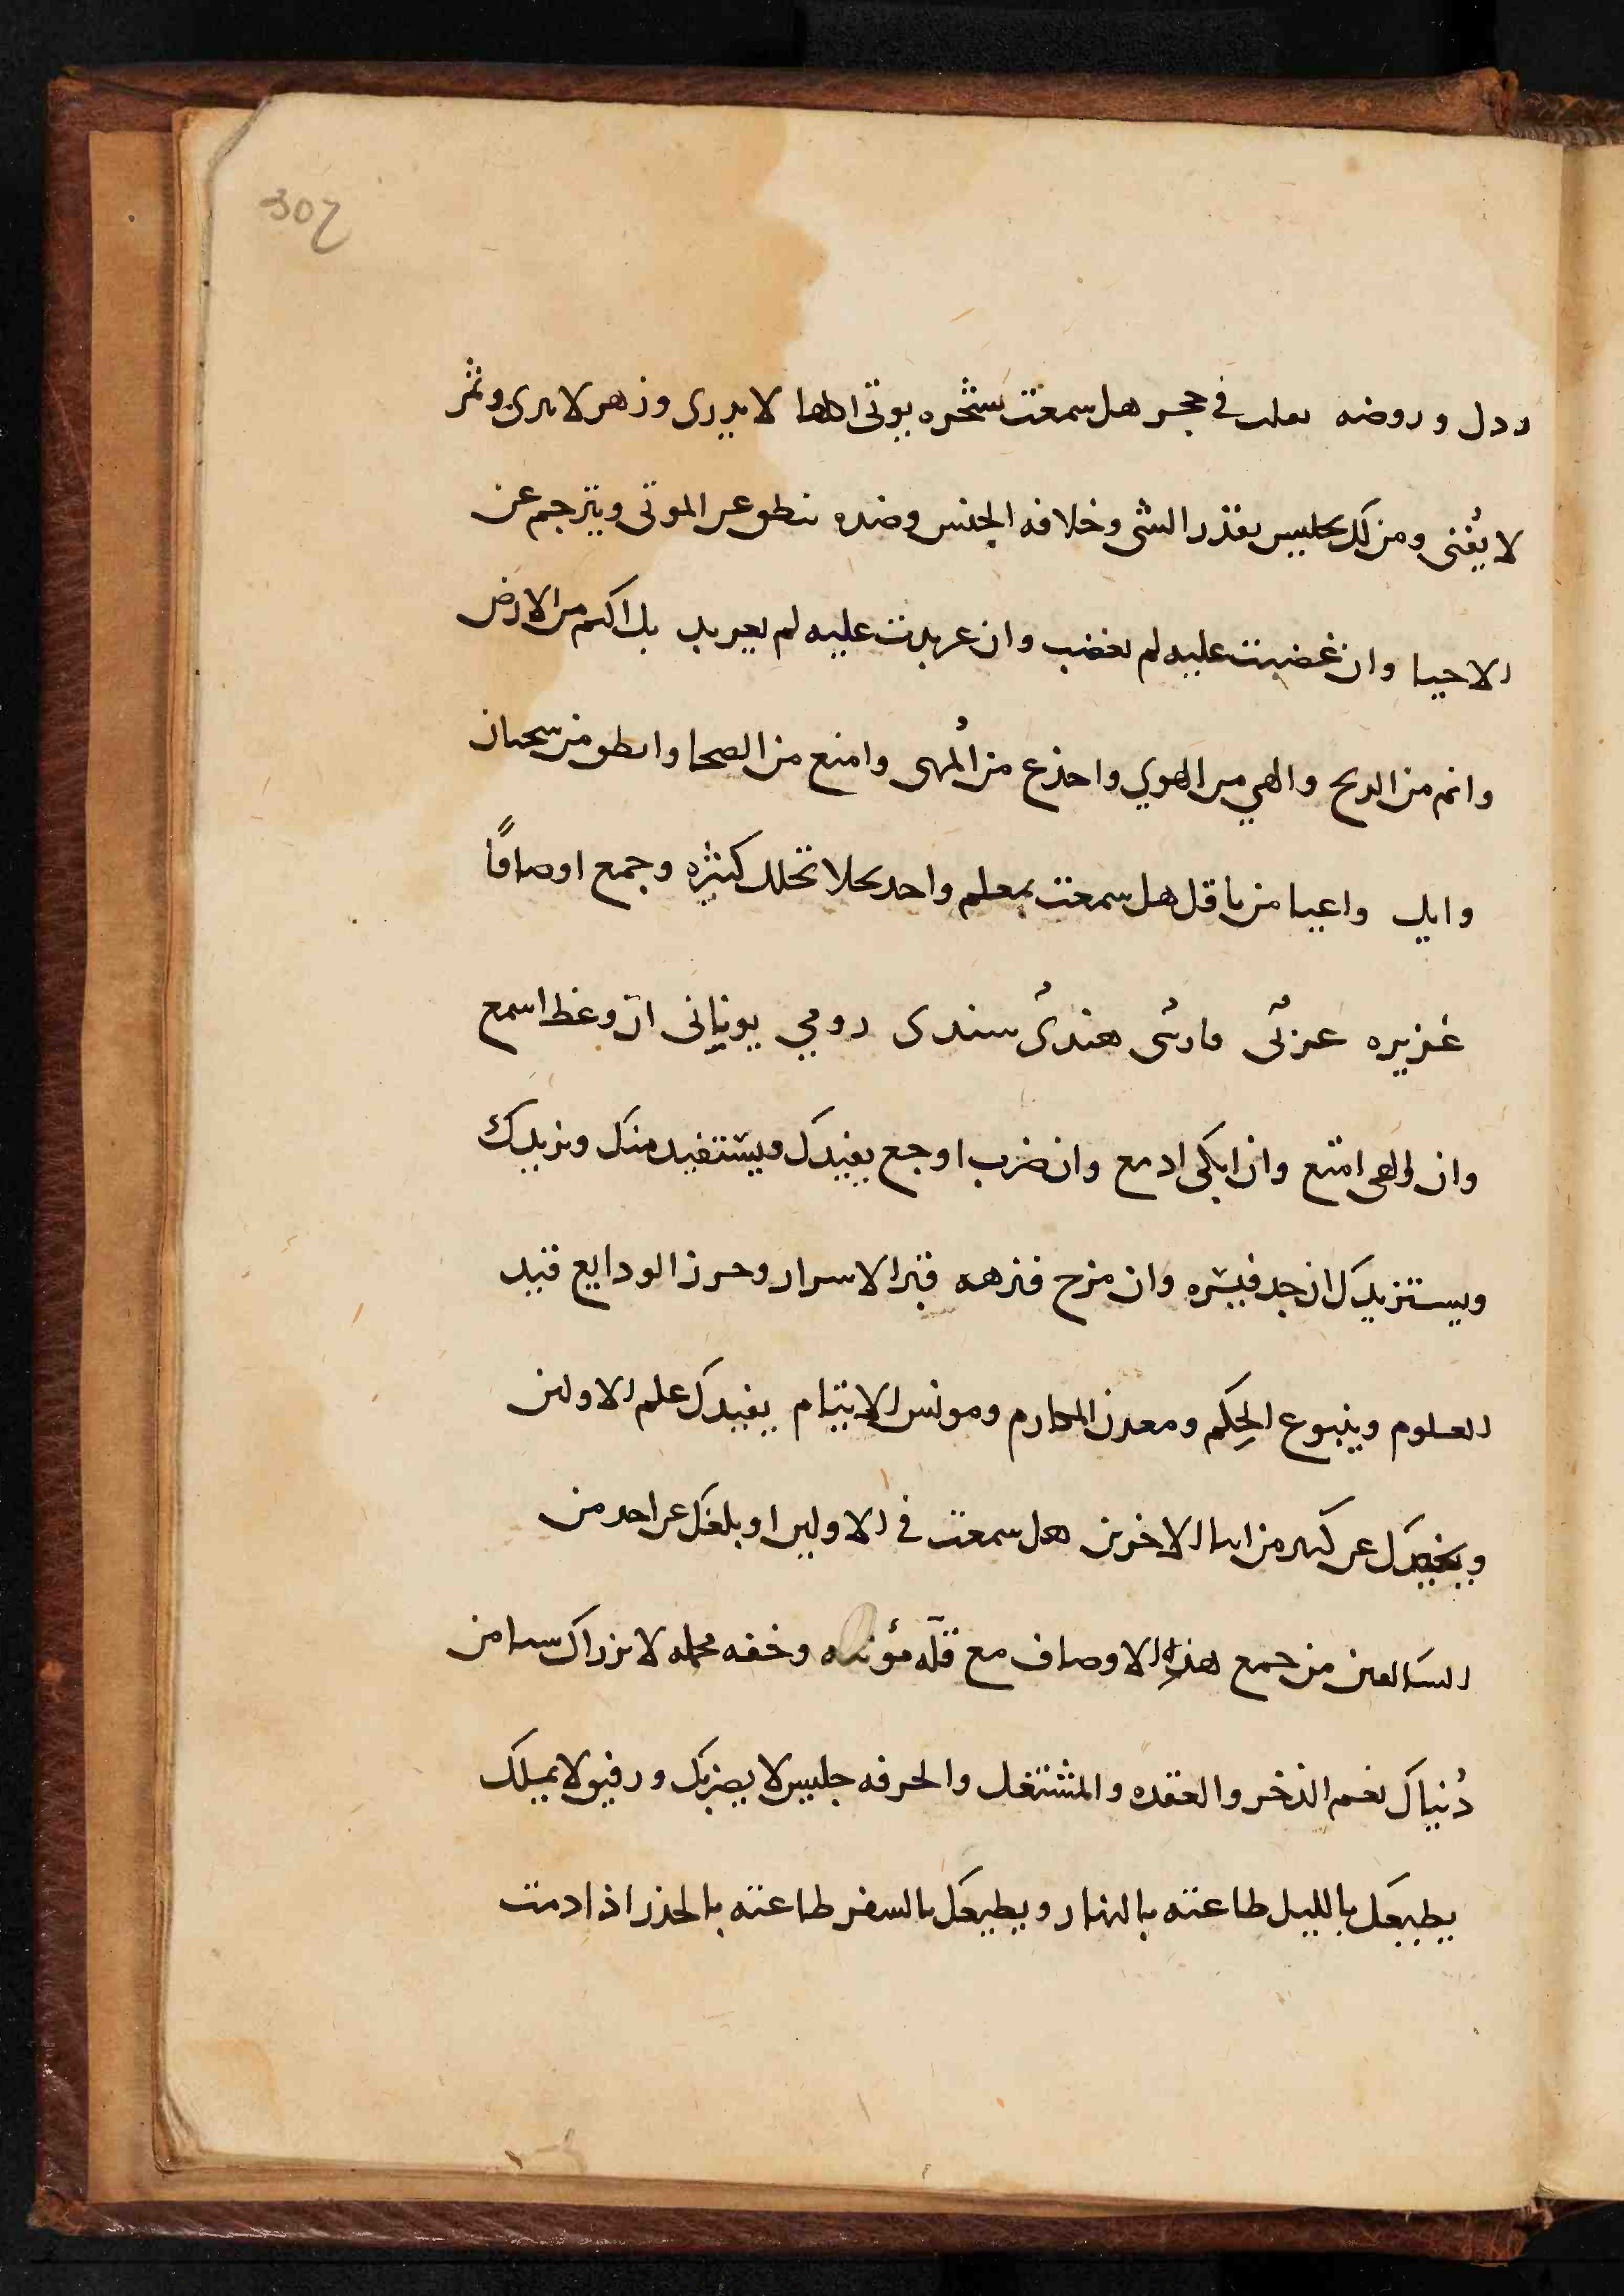 307
ردل وروضه تعلب في حجر هل سمعت بشجره يوتى اكلها لا يدرى وزهر لا يدرى وثمر
لا يفنى ومن لك بجليس يفدر الشى وخلافه الجنس وضده ينطق عن الموتى ويترجم عن
الاحيا وان غضبت عليه لم يغضب وان عربدت عليه لم يعربد بل اكتم من الارض
وانم من الريح والهي من الهوي واخدع من المنى وامنع من الضحا وانطق من سحبان
وايل واعيا من باقل هل سمعت بمعلم واحد بخلا تخلل كثيره وجمع اوصافًا
غزيره عربى فارسى هندى سندى رومي يونانى ان وعظ اسمع
وان الهى امتع وان ابكى ادمع وان ضرب اوجع يفيدك ويستفيد منك ويزيدك
ويستزيدك ان جد فبشره وان مزح فنزهه قبر الاسرار وحرز الودايع قيد
العلوم وينبوع الحكم ومعدن المكارم ومونس الايتام يفيدك علم الاولين
ويخبرك عن كثير من انبا الاخرين هل سمعت في الاولين او بلغك عن احد من
السالفين من جمع هذه الاوصاف مع قلة مؤنته وخفه محمله لا يرزاك شيا من
دنياك نعم الذخر والعقده والمشتغل والحرفه جليس لا يضربك ورفيق لا يملك
يطيعك بالليل طاعته بالنهار ويطيعك بالسفر طاعته بالحذر اذا دمت